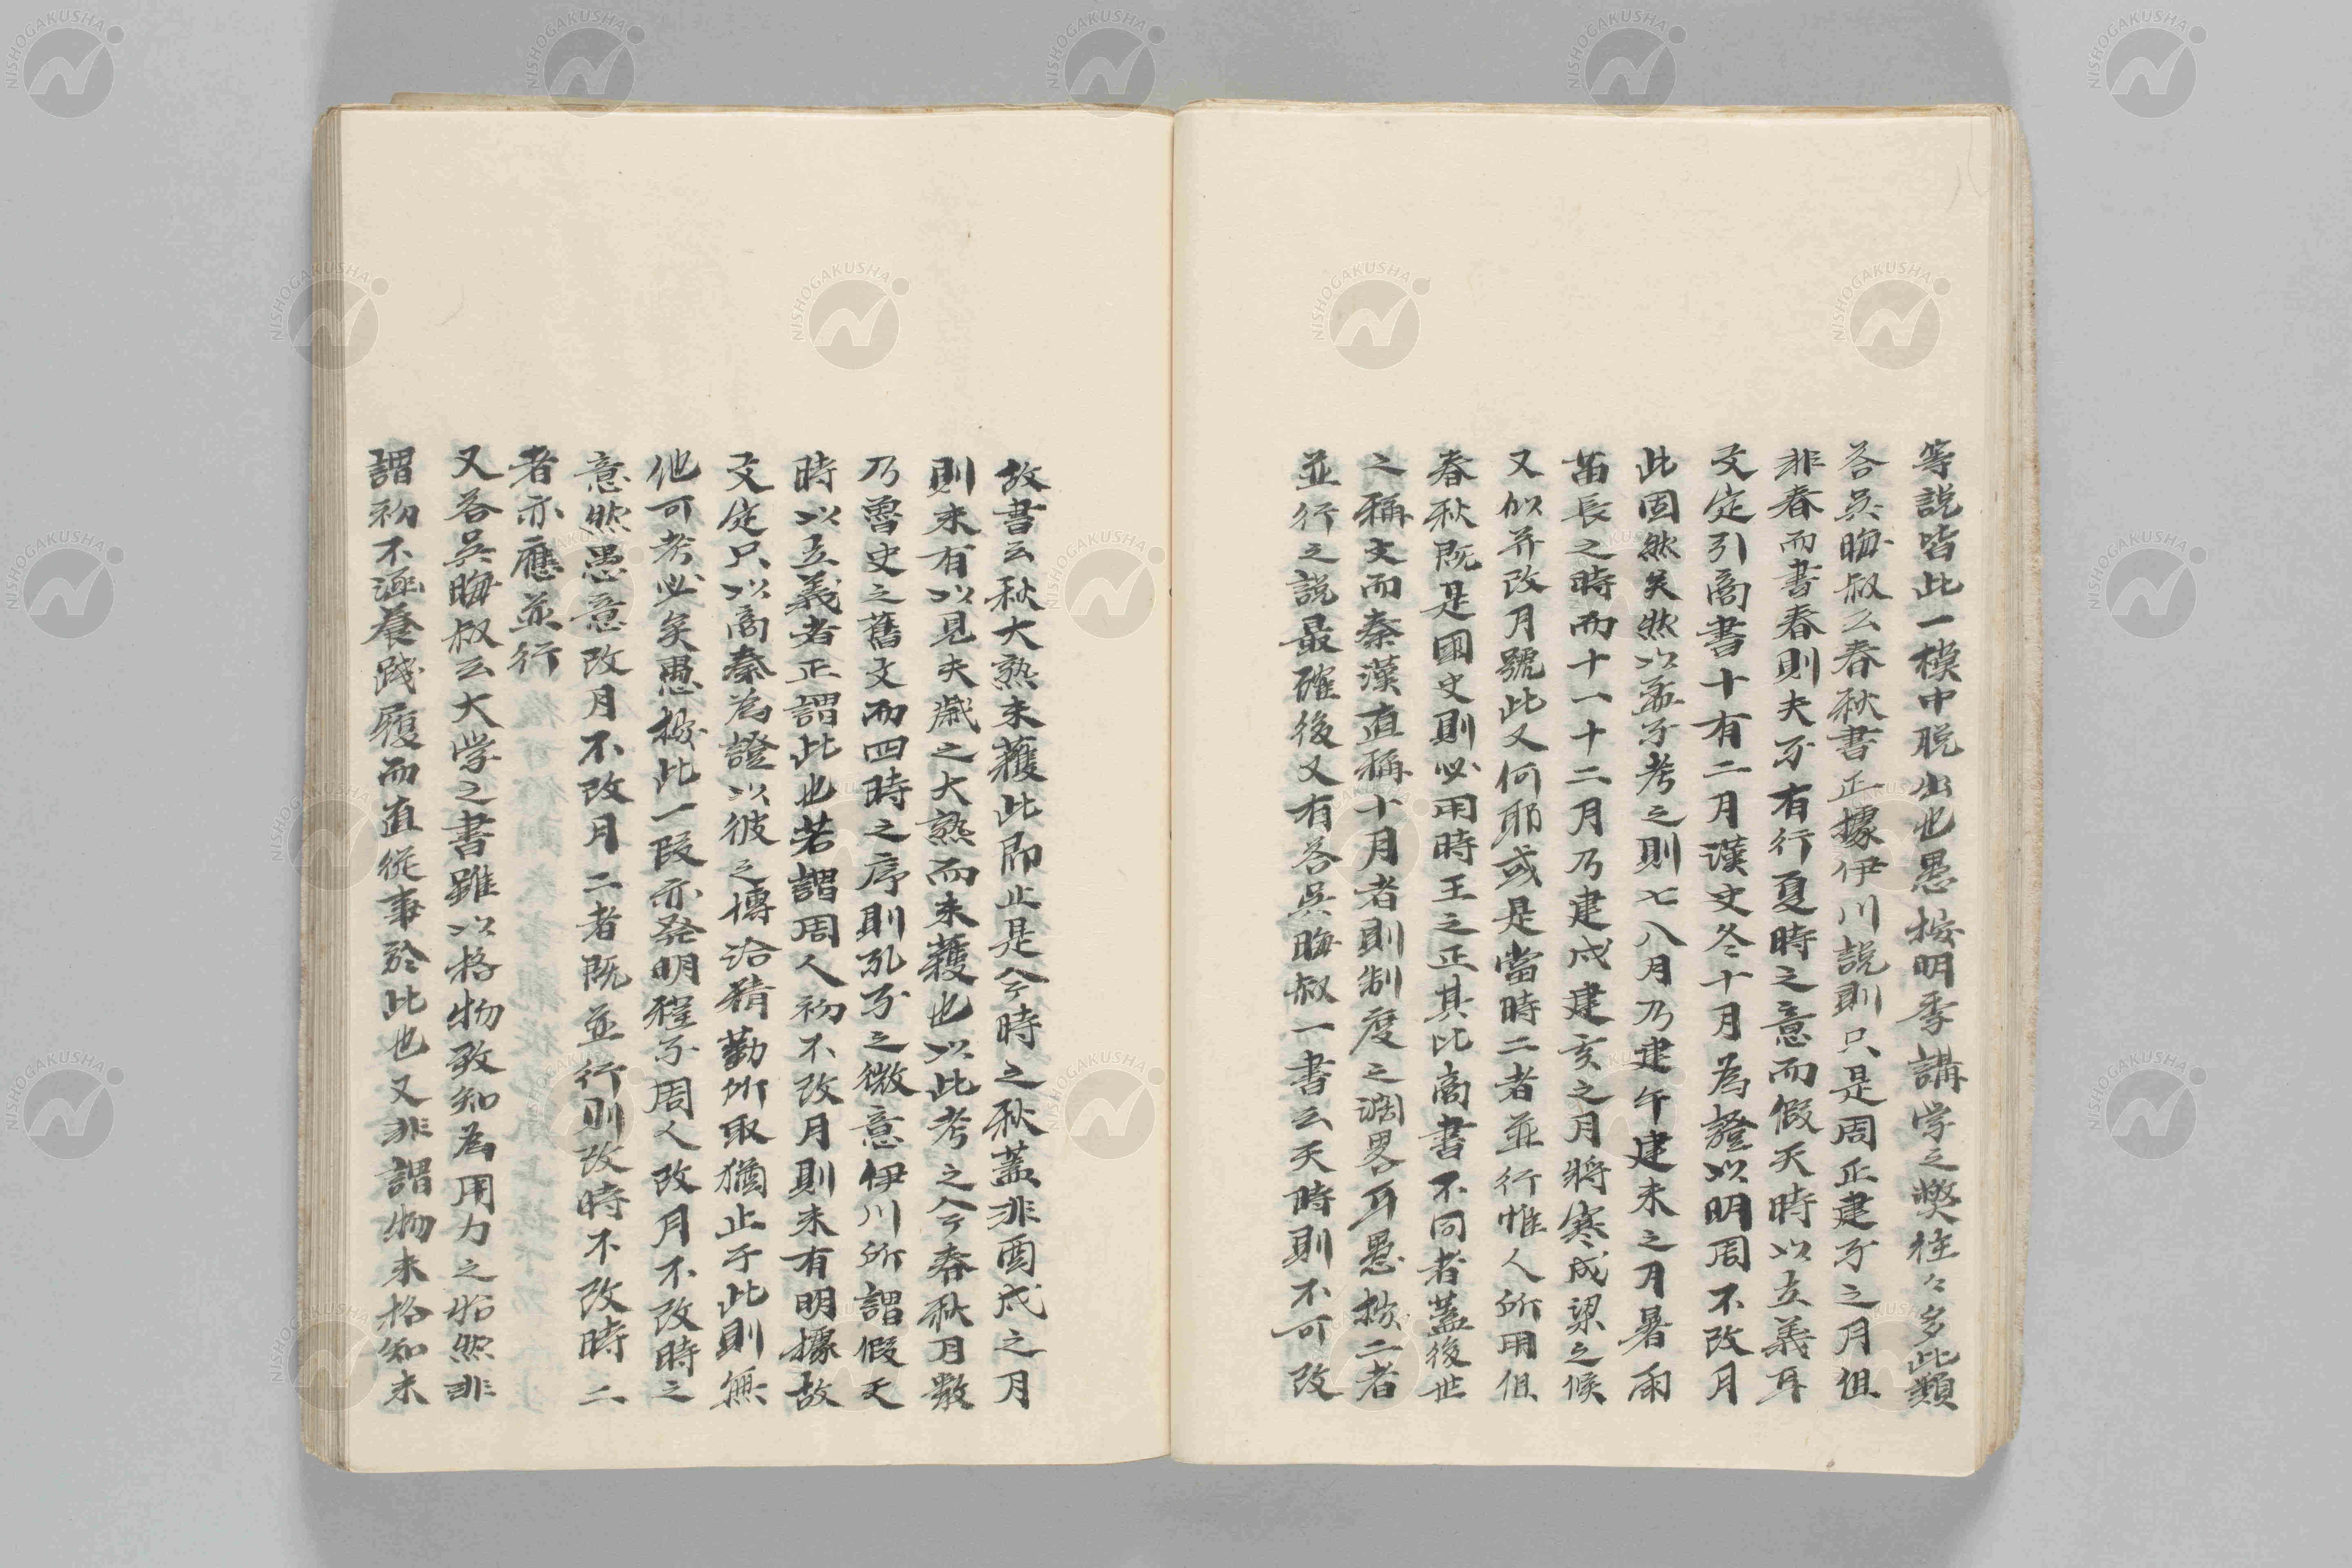 等説皆此一模中脱出也愚按明季講学之獘往々多此類
答呉晦叔云春秋書正據伊川説則只是周正建子之月但
非春而書春則夫子有行夏時之意而假天時以立義耳
文定引商書十有二月漢史冬十月為證以明周不改月
此固然矣然以孟子考之則七八月乃建午建未之月暑雨
苗長之時而十一十二月乃建戌建亥之月將寒成梁之候
又似并改月號此又何耶或是當時二者並行惟人所用但
春秋既是國史則必用時王之正其比商書不同者蓋後世
之稱文而秦漢直稱十月者則制度之濶畧耳愚按二者
並行之説最確後又有答呉晦叔一書云天時則不可改
故書云秋大熟未穫此即止是今時之秋蓋非酉戌之月
則未有以見夫歳之大熟而未穫也以此考之今春秋月數
乃魯史之舊文而四時之序則孔子之微意伊川所謂假天
時以立義者正謂此也若謂周人初不改月則未有明據故
文定只以商秦為證以彼之博洽精勤所取猶止于此則無
他可考必矣愚按此一段亦発明程子周人改月不改時之
意然愚意改月不改月二者既並行則改時不改時二
者亦應並行
又答呉晦叔云大学之書雖以格物致知為用力之始然非
謂初不涵養踐履而直従事於此也又非謂物未格知未
NISHOGAKUSHA